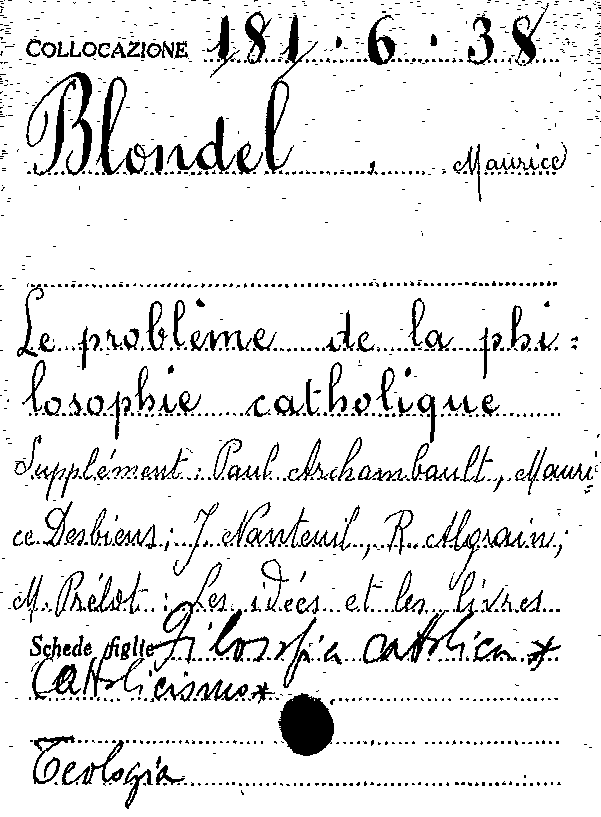 COLLOCAZIONE 181 · 6 · 38
Blondel , Maurice
Le problème de la phi=
losophie catholique
Supplément: Paul Archambault, Mauri=
ce Desbiens; J. Nanteuil, R. Algrain,
M. Prélot: Les idées et les livres
Schede figlie Filosofia cattolica *
Cattolicismo *
Teologia